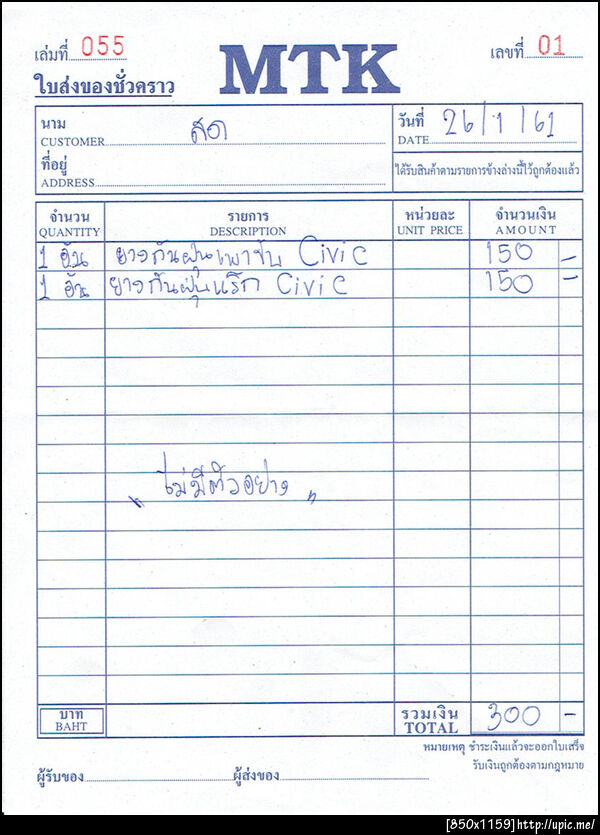 เล่มที่ 055
MTK
เลขที่ 01
ใบส่งของชั่วคราว
นาม
CUSTOMER
สด
วันที่
DATE
26/1/61
ที่อยู่
ADDRESS
ได้รับสินค้าตามรายการข้างล่างนี้ไว้ถูกต้องแล้ว
จำนวน รายการ หน่วยละ จำนวนเงิน
QUANTITY DESCRIPTION UNIT PRICE AMOUNT
1 อัน ยางกันฝุ่นเพาขับ Civic 150 -
1 อัน ยางกันฝุ่นแร็ก Civic 150 -
"ไม่มีตัวอย่าง"
บาท รวมเงิน 300 -
BAHT TOTAL
หมายเหตุ ชำระเงินแล้วจะออกใบเสร็จ
รับเงินถูกต้องตามกฎหมาย
ผู้รับของ ผู้ส่งของ
[850x1159]http://upic.me/